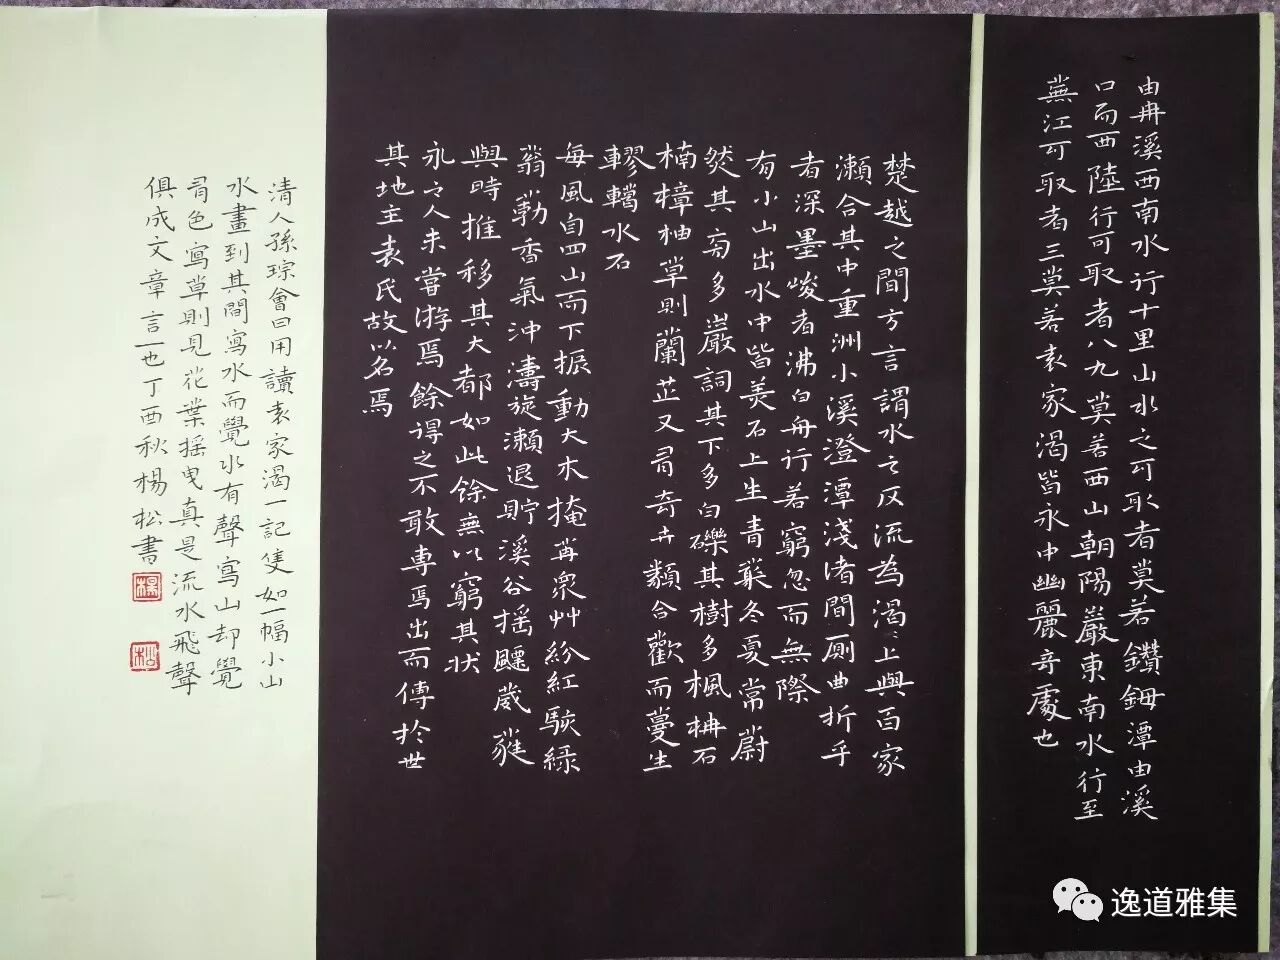 由冉溪西南水行十里山水之可取者莫若鑽鉧潭由溪
口而西陸行可取者八九莫善西山朝陽巖東南水行至
蕪江可取者三莫若袁家渴皆永中幽麗奇處也
楚越之間方言謂水之反流為渴渴上與百家
瀨合其中重洲小溪澄潭淺渚間厠曲折乎
者深墨峻者沸白舟行若窮忽而無際
有小山出水中皆美石上生青叢冬夏常蔚
然其旁多巖詞其下多白礫其樹多楓柟石
楠樟柚草則蘭芷又有奇卉類合歡而蔓生
轇轕水石
每風自四山而下振動大木掩苒衆艸紛紅駭綠
蓊葧香氣沖濤旋瀨退貯溪谷摇飃葳蕤
與時推移其大都如此餘無以窮其狀
永之人未嘗游焉餘得之不敢專焉出而傳於世
其地主袁氏故以名焉
清人孫琮會曰用讀袁家渴一記隻如一幅小山
水畫到其間寫水而覺水有聲寫山却覺
有色寫草則見花葉摇曳真是流水飛聲
俱成文章言一也丁酉秋楊松書
楊
松
逸道雅集